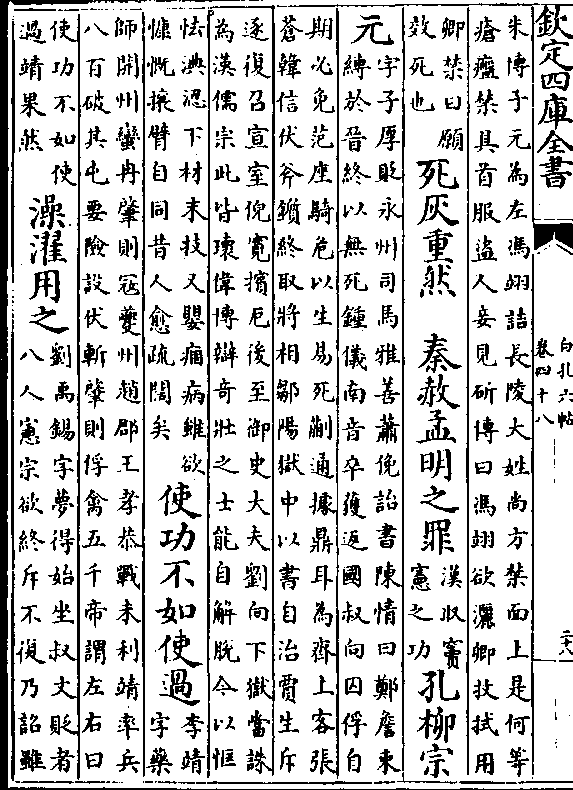 欽定四庫全書
白孔六帖
卷四十八
二十八
朱博子元為左馮翊詰長陵大姓尚方禁面上是何等
瘡瘢禁具首服盜人妻見斫博曰馮翊欲灑卿抆拭用
卿禁曰願
效死也
死灰重然　秦赦孟明之罪
漢収竇
憲之功
孔柳宗
元
字子厚貶永州司馬雅善蕭俛詒書陳情曰鄭詹束
縛於晉終以無死鍾儀南音卒獲返國叔向囚俘自
期必免范座騎危以生易死蒯通據鼎耳為齊上客張
蒼韓信伏斧鑕終取將相鄒陽獄中以書自治賈生斥
逐復召宣室倪寛擯厄後至御史大夫劉向下獄當誅
為漢儒宗此皆瓌偉博辯奇壯之士能自解脫今以恇
怯淟涊下材末技又嬰痼病雖欲
慷慨攘臂自同昔人愈疏闊矣
使功不如使過
李靖
字藥
師開州蠻冉肇則寇夔州趙郡王孝恭戰未利靖率兵
八百破其屯要險設伏斬肇則俘禽五千帝謂左右曰
使功不如使
過靖果然
澡濯用之
劉禹錫字夢得始坐叔文貶者
八人憲宗欲終斥不復乃詔雖